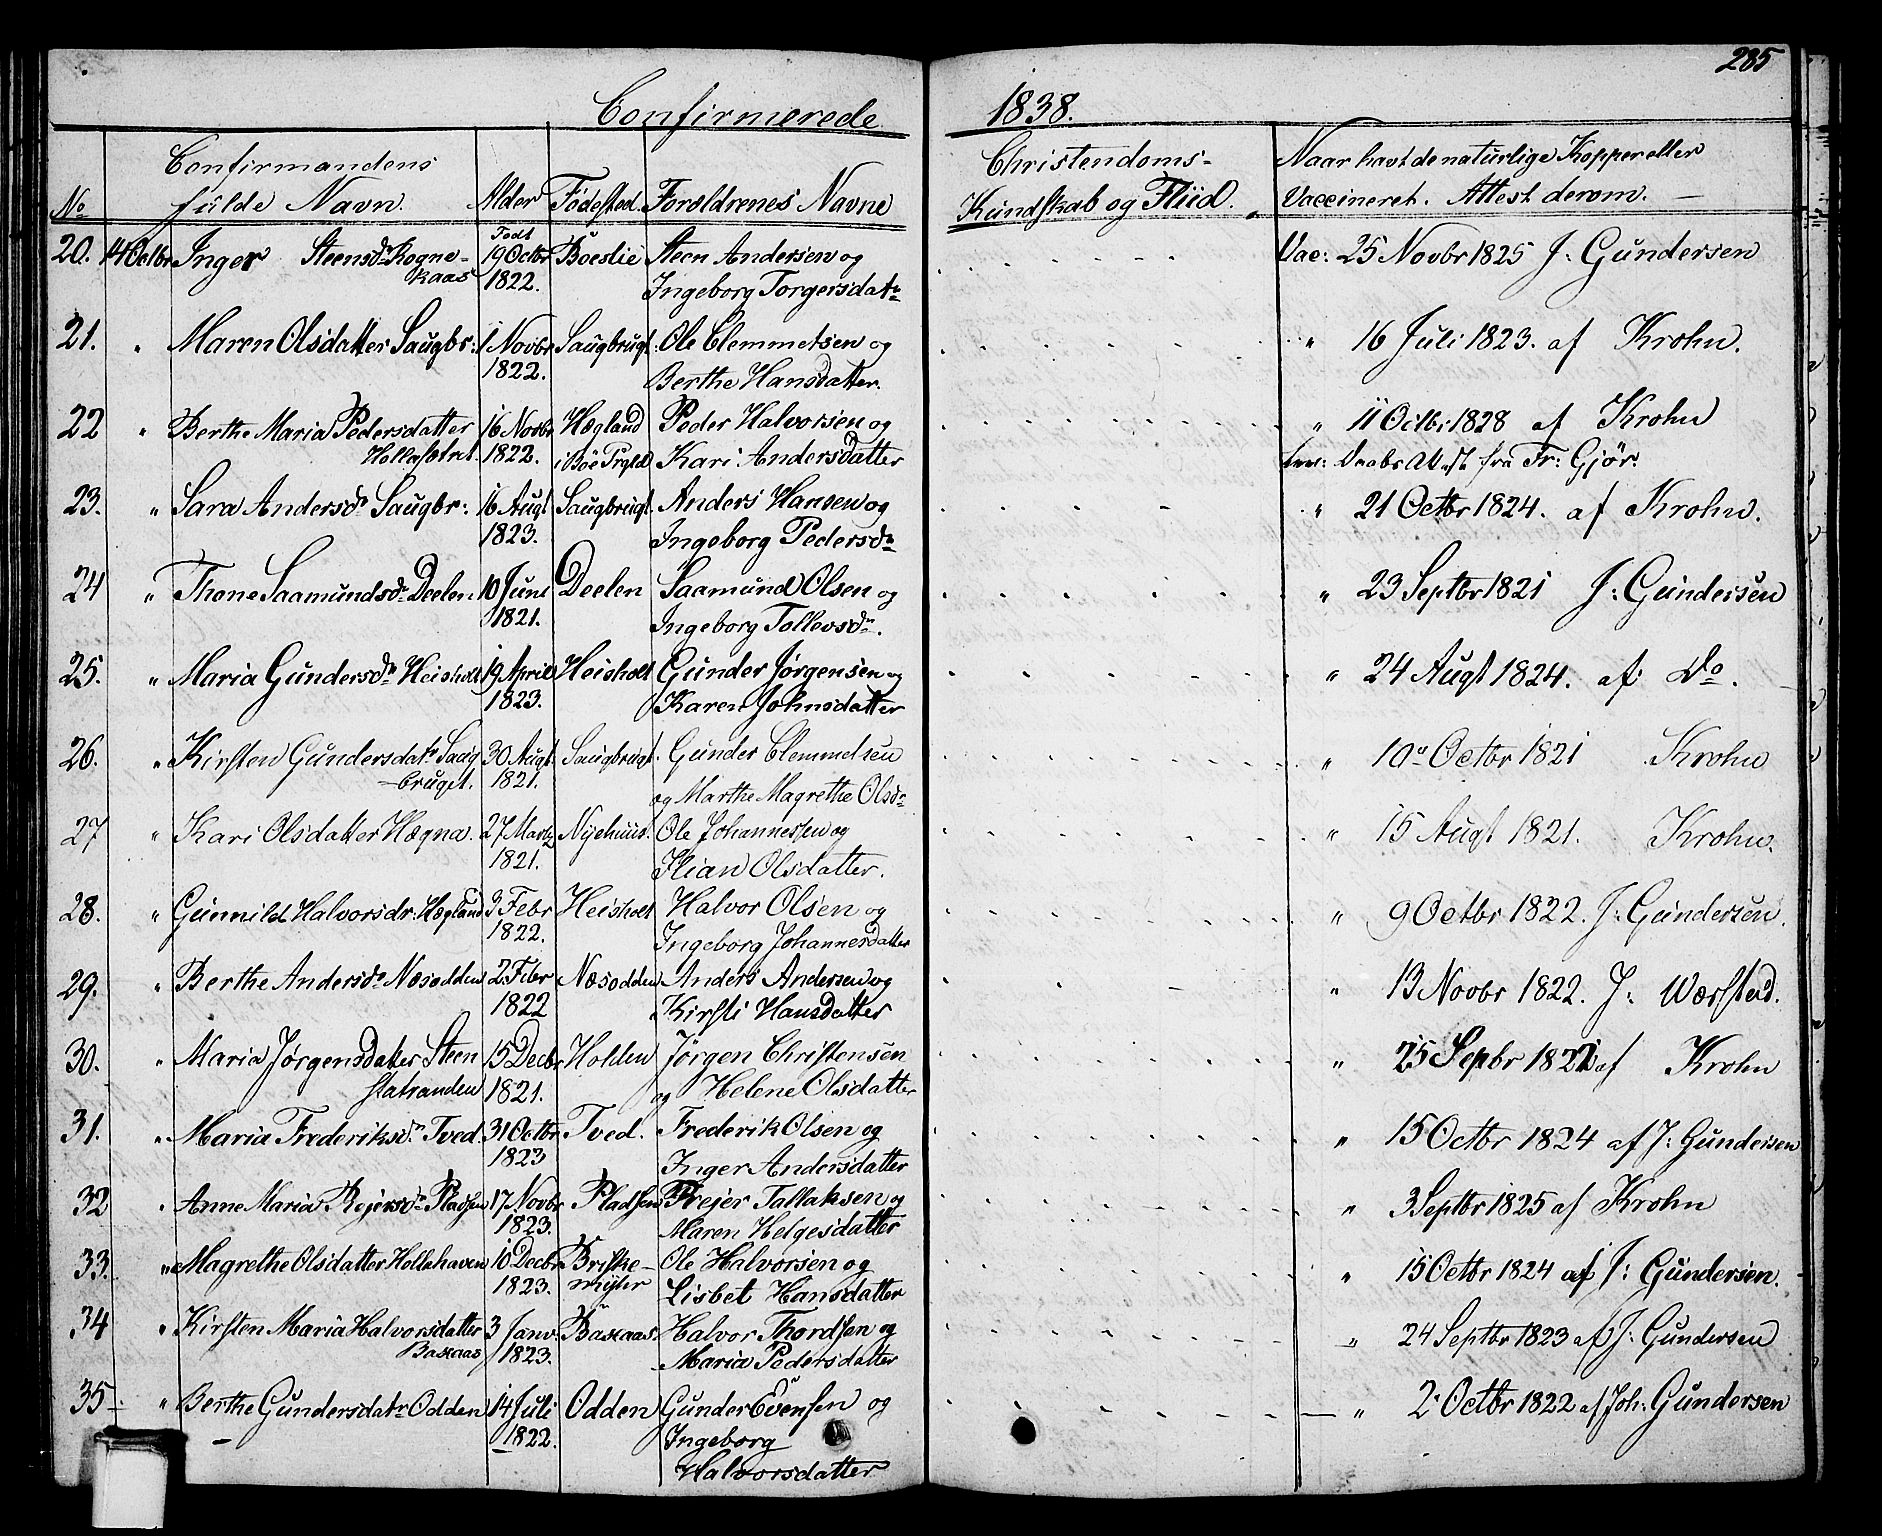 285
Confirmerede 1838.
No
Confirmandens
fulde Navn.
Alder
Fødested.
Forældrenes Navne
Christendoms-
Kundskab og Fliid.
Naar havt de naturlige Kopper eller
Vaccineret. Attest derom.
20. 14 Octbr Inger Steensdr Rogne- Født 19 Octbr Böeslie Steen Andersen og Vac: 25 Novbr 1825 J: Gundersen
kaas 1822. Ingeborg Torgersdatr
21. " Maren Olsdatter Saugbr: 1 Novbr Saugbrugt Ole Clemmetsen og " 16 Juli 1823. af Krohn.
1822. Berthe Hansdatter.
22 " Berthe Maria Pedersdatter 16 Novbr Hægland Peder Halvorsen og " 11 Octbr 1828 af Krohn
Hollasetret. 1822. i Böe Prgld Kari Andersdatter Daabs Attest fra Fr: Gjör:
23. " Sara Andersdr Saugbr: 16 Augt Saugbrugt. Anders Hansen og " 21 Octbr 1824. af Krohn.
1823. Ingeborg Pedersdr
24 " Thone Saamundsdr Deelen 10 Juni Deelen Saamund Olsen og " 23 Septbr 1821 J: Gundersen
1821. Ingeborg Tollevsdr.
25. " Maria Gundersdr Heisholt 19 April Heisholt Gunder Jørgensen og " 24 Augt 1824. af Do.
1823. Karen Johnsdatter
26. " Kirsten Gundersdatr Saug 30 Augt Saugbrugt. Gunder Clemmetsen " 10 Octbr 1821 Krohn
-bruget. 1821. og Marthe Magrethe Olsdr
27 " Kari Olsdatter Hægna. 27 Martz Nyehuus. Ole Johannessen og " 15 Augt 1821. Krohn.
1821. Ilian Olsdatter.
28. " Gunnild Halvorsdr: Hægland 3 Febr Heisholt Halvor Olsen og " 9 Octbr 1822. J: Gundersen.
1822. Ingeborg Johannesdatter
29. " Berthe Andersdr Næsodden 2 Febr Næsodden Anders Andersen og " 13 Novbr 1822. J: Wærsted.
1822 Kirsti Hansdatter
30. " Maria Jørgensdatter Steen 15 Decbr Holden Jørgen Christensen " 25 Sepbr 1822 af Krohn
statranden 1821. og Helene Olsdatter
31. " Maria Frederiksdr Tved. 31 Octbr Tved. Frederik Olsen og " 15 Octbr 1824 af J: Gundersen
1823 Inger Andersdatter
32 " Anne Maria Rejersdr Pladsen 17 Novbr Pladsen Rejer Tallaksen og " 3 Septbr 1825 af Krohn
1823. Maren Helgesdatter
33. " Magrethe Olsdatter Hollahaven 10 Decbr Briske- Ole Halvorsen og " 15 Octbr 1824 af J: Gundersen.
1823. myhr Lisbet Hansdatter
34 " Kirsten Maria Halvorsdatter 3 Janv. Baskaas. Halvor Thordsen og " 24 Septbr 1823 af J: Gundersen
Baskaas 1823. Maria Pedersdatter
35 " Berthe Gundersdatr Odden 14 Juli Odden Gunder Evensen og " 2 Octbr 1822 af Joh: Gundersen
1822. Ingeborg
Halvorsdatter